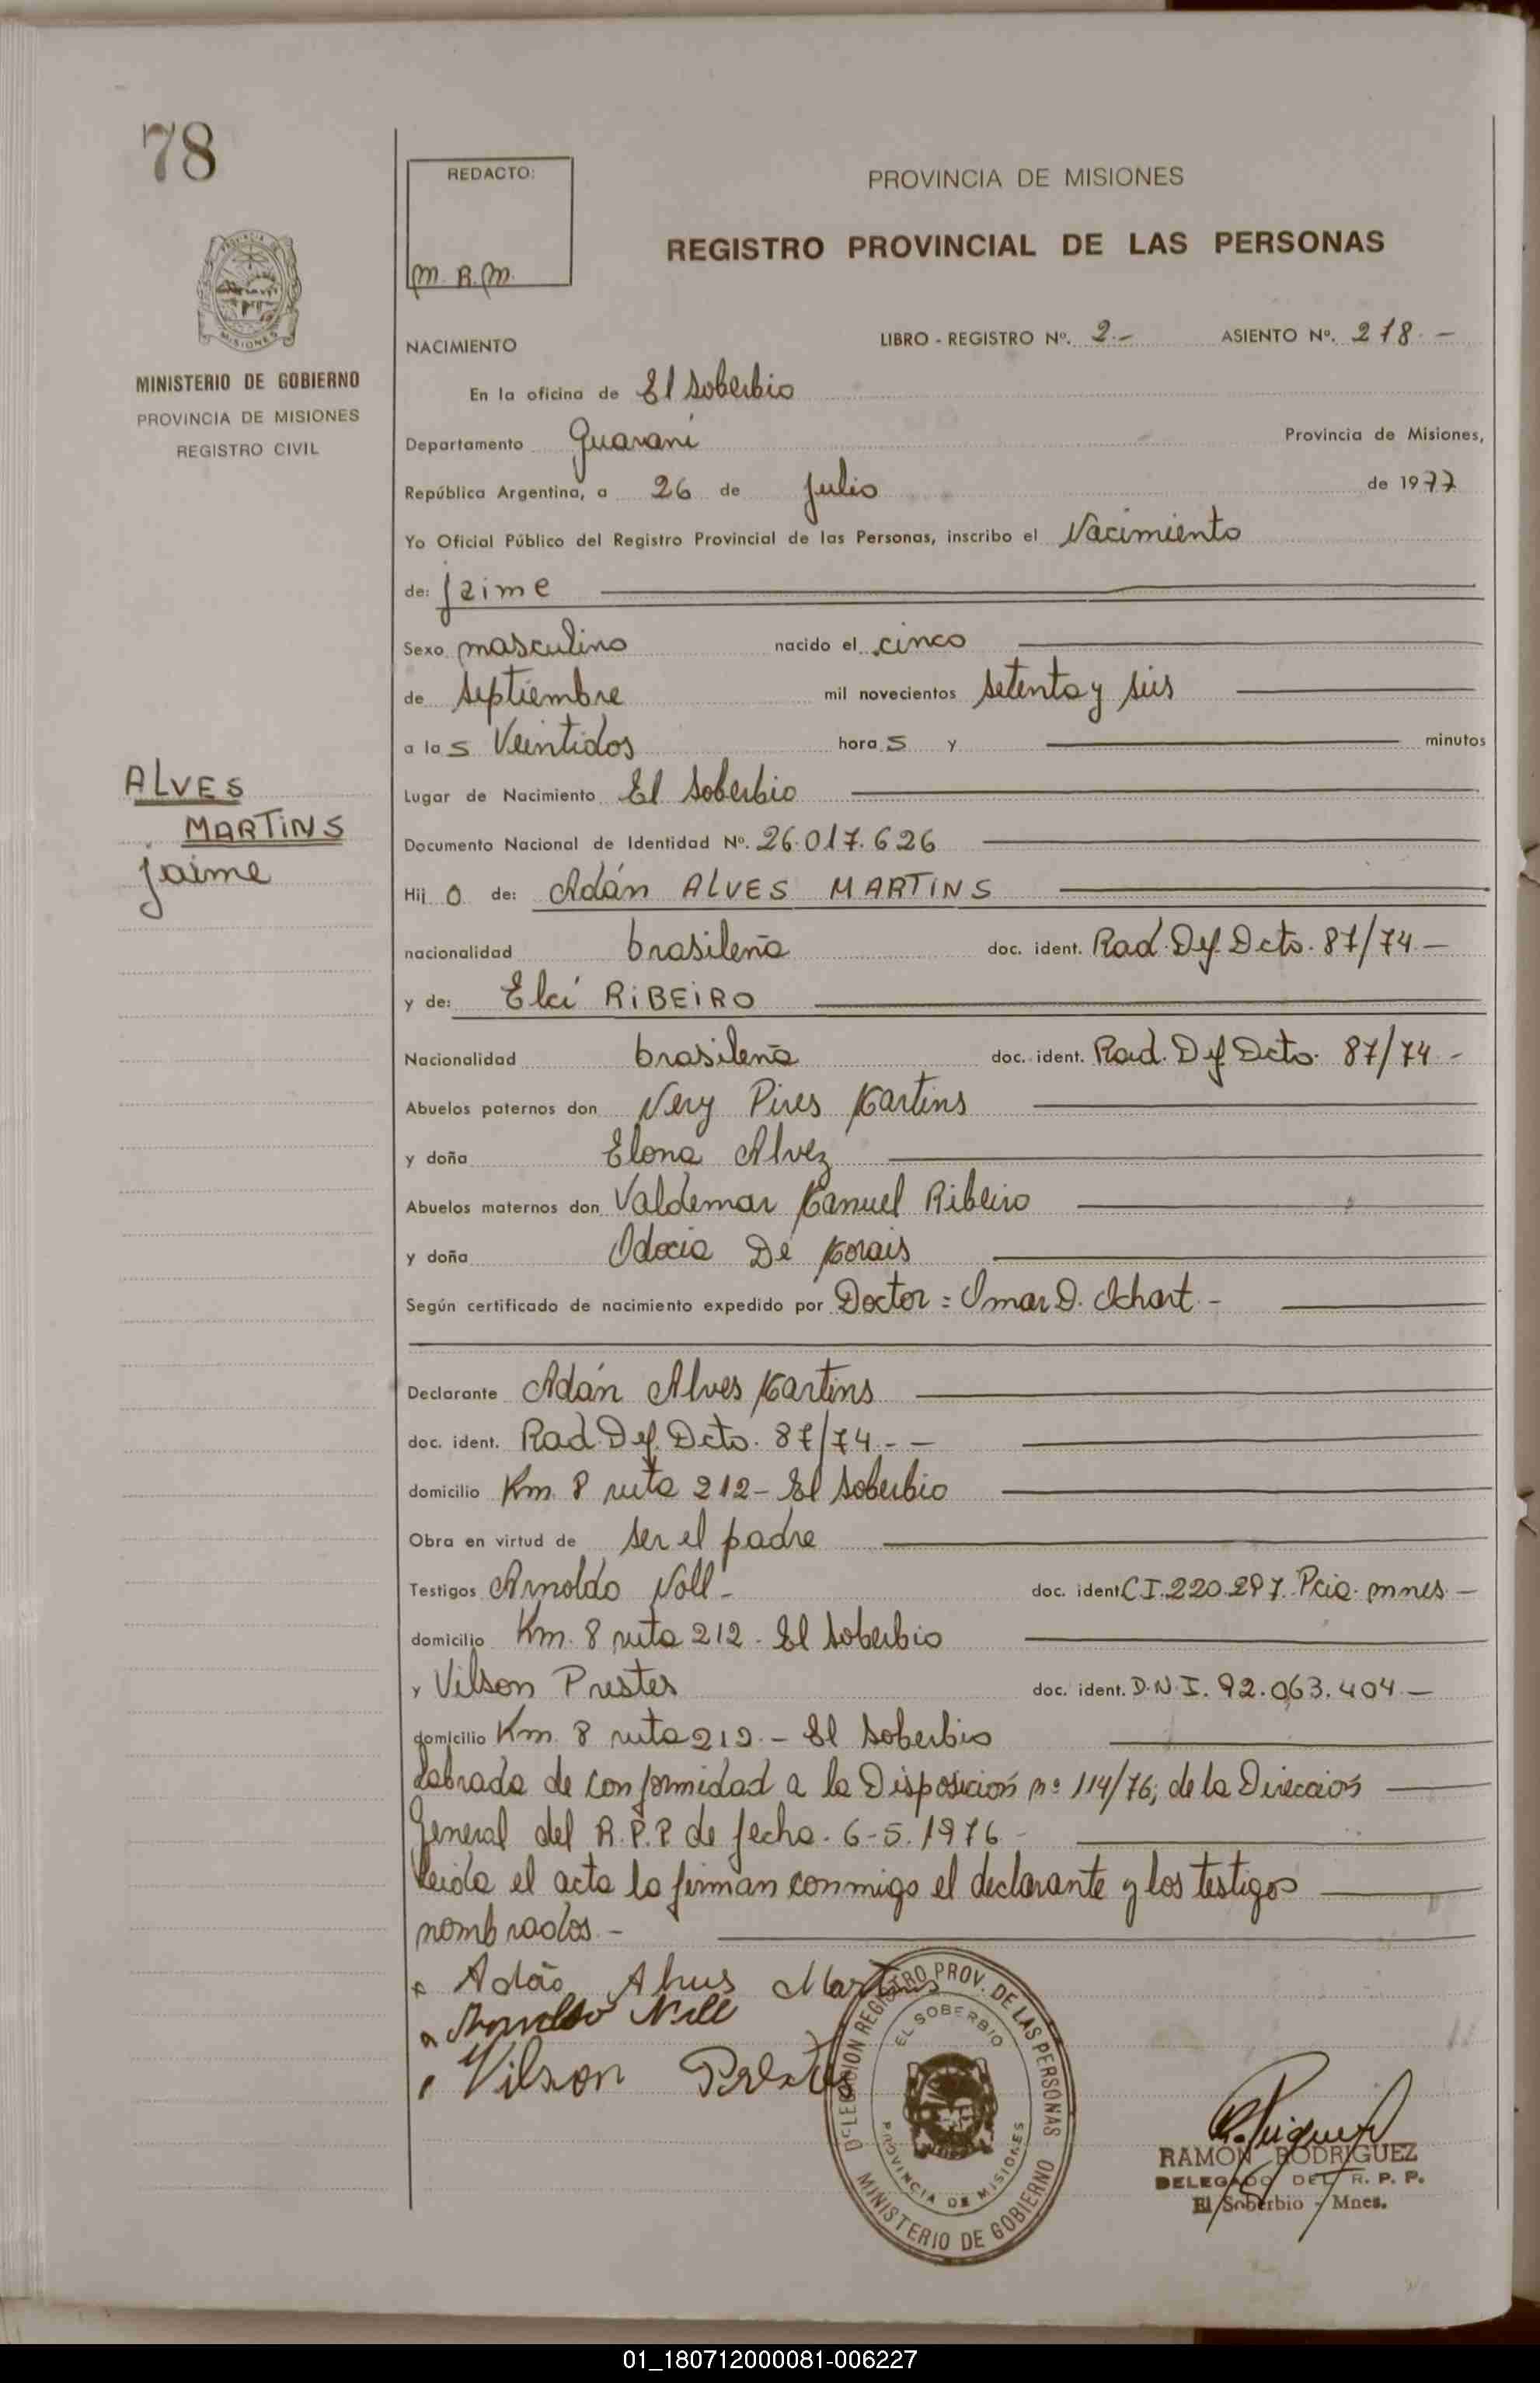 78
REDACTO:
M. R. M.
PROVINCIA DE MISIONES
REGISTRO PROVINCIAL DE LAS PERSONAS
MINISTERIO DE GOBIERNO
PROVINCIA DE MISIONES
REGISTRO CIVIL
NACIMIENTO LIBRO - REGISTRO Nº. 2.- ASIENTO Nº. 218.-
En la oficina de El Soberbio
Departamento Guaraní Provincia de Misiones,
República Argentina, a 26 de Julio de 1977
Yo Oficial Público del Registro Provincial de las Personas, inscribo el Nacimiento
de: Jaime
Sexo masculino nacido el cinco
de septiembre mil novecientos setenta y seis
a las Veintidos horas y minutos
ALVES
MARTINS
Jaime
Lugar de Nacimiento El Soberbio
Documento Nacional de Identidad Nº. 26.017.626
Hijo de: Adán ALVES MARTINS
nacionalidad brasileña doc. ident. Rad. Def. Dcto. 87/74 -
y de: Elci RiBEiRO
Nacionalidad brasileña doc. ident. Rad. Def Dcto. 87/74 -
Abuelos paternos don Nery Pires Martins
y doña Elona Alvez
Abuelos maternos don Valdemar Manuel Ribeiro
y doña Odocia De Morais
Según certificado de nacimiento expedido por Doctor = Omar D. Ichart. -
Declarante Adán Alves Martins
doc. ident. Rad. Def. Dcto. 87/74 - -
domicilio Km. 8 ruta 212 - El Soberbio
Obra en virtud de ser el padre
Testigos Arnoldo Noll - doc. ident C.I. 220.297. Pcia. mnes. -
domicilio Km. 8 ruta 212 - El Soberbio
y Vilson Prestes doc. ident. D.N.I. 92.063.404 -
domicilio Km. 8 ruta 212. - El Soberbio
Labrada de conformidad a la Disposición nº 114/76, de la Direccion
General del R.P.P de fecha. 6-5.1976 -
Leida el acta la firman conmigo el declarante y los testigos
nombrados. -
Adão Alves Martins
Arnoldo Noll
Vilson Prestes
DELEGACION REGISTRO PROV. DE LAS PERSONAS
EL SOBERBIO
PROVINCIA DE MISIONES
MINISTERIO DE GOBIERNO
RAMÓN RODRIGUEZ
DELEGADO DEL R. P. P.
El Soberbio - Mnes.
01_180712000081-006227